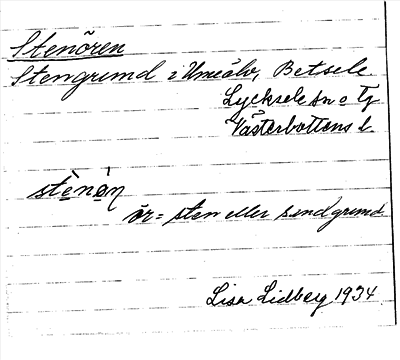 Stenören
Stengrund i Umeälv, Betsele
Lycksele sn o Tg
Västerbottens l.
sten
ör = sten eller sandgrund
Lisa Lidberg 1934